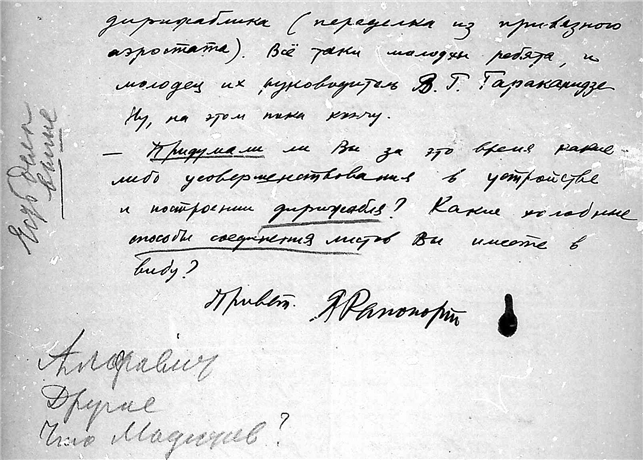 дирижаблика (переделка из привязного
аэростата). Всё таки молодцы ребята, и
молодец их руководитель В. Г. Гараканидзе
Ну, на этом пока кончу.
— Придумали ли Вы за это время какие-
либо усовершенствования в устройстве
и построении дирижабля? Какие холодные
способы соединения листов Вы имеете в
виду?
Привет. Я Рапопорт
Другие
Что